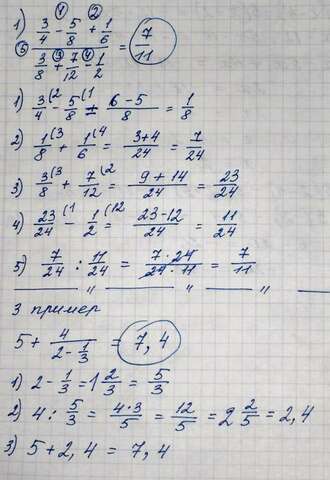 1) (3/4 ① - 5/8 ② + 1/6) ⑤ / (3/8 ③ + 7/12 ④ - 1/2) = 7/11
1) 3/4 (2 - 5/8 (1 = (6-5)/8 = 1/8
2) 1/8 (3 + 1/6 (4 = (3+4)/24 = 7/24
3) 3/8 (3 + 7/12 (2 = (9+14)/24 = 23/24
4) 23/24 (1 - 1/2 (12 = (23-12)/24 = 11/24
5) 7/24 : 11/24 = (7·24)/(24·11) = 7/11
—— „ —— „ —— „ ——
3 пример
5 + 4/(2 - 1/3) = 7,4
1) 2 - 1/3 = 1 2/3 = 5/3
2) 4 : 5/3 = (4·3)/5 = 12/5 = 2 2/5 = 2,4
3) 5 + 2,4 = 7,4